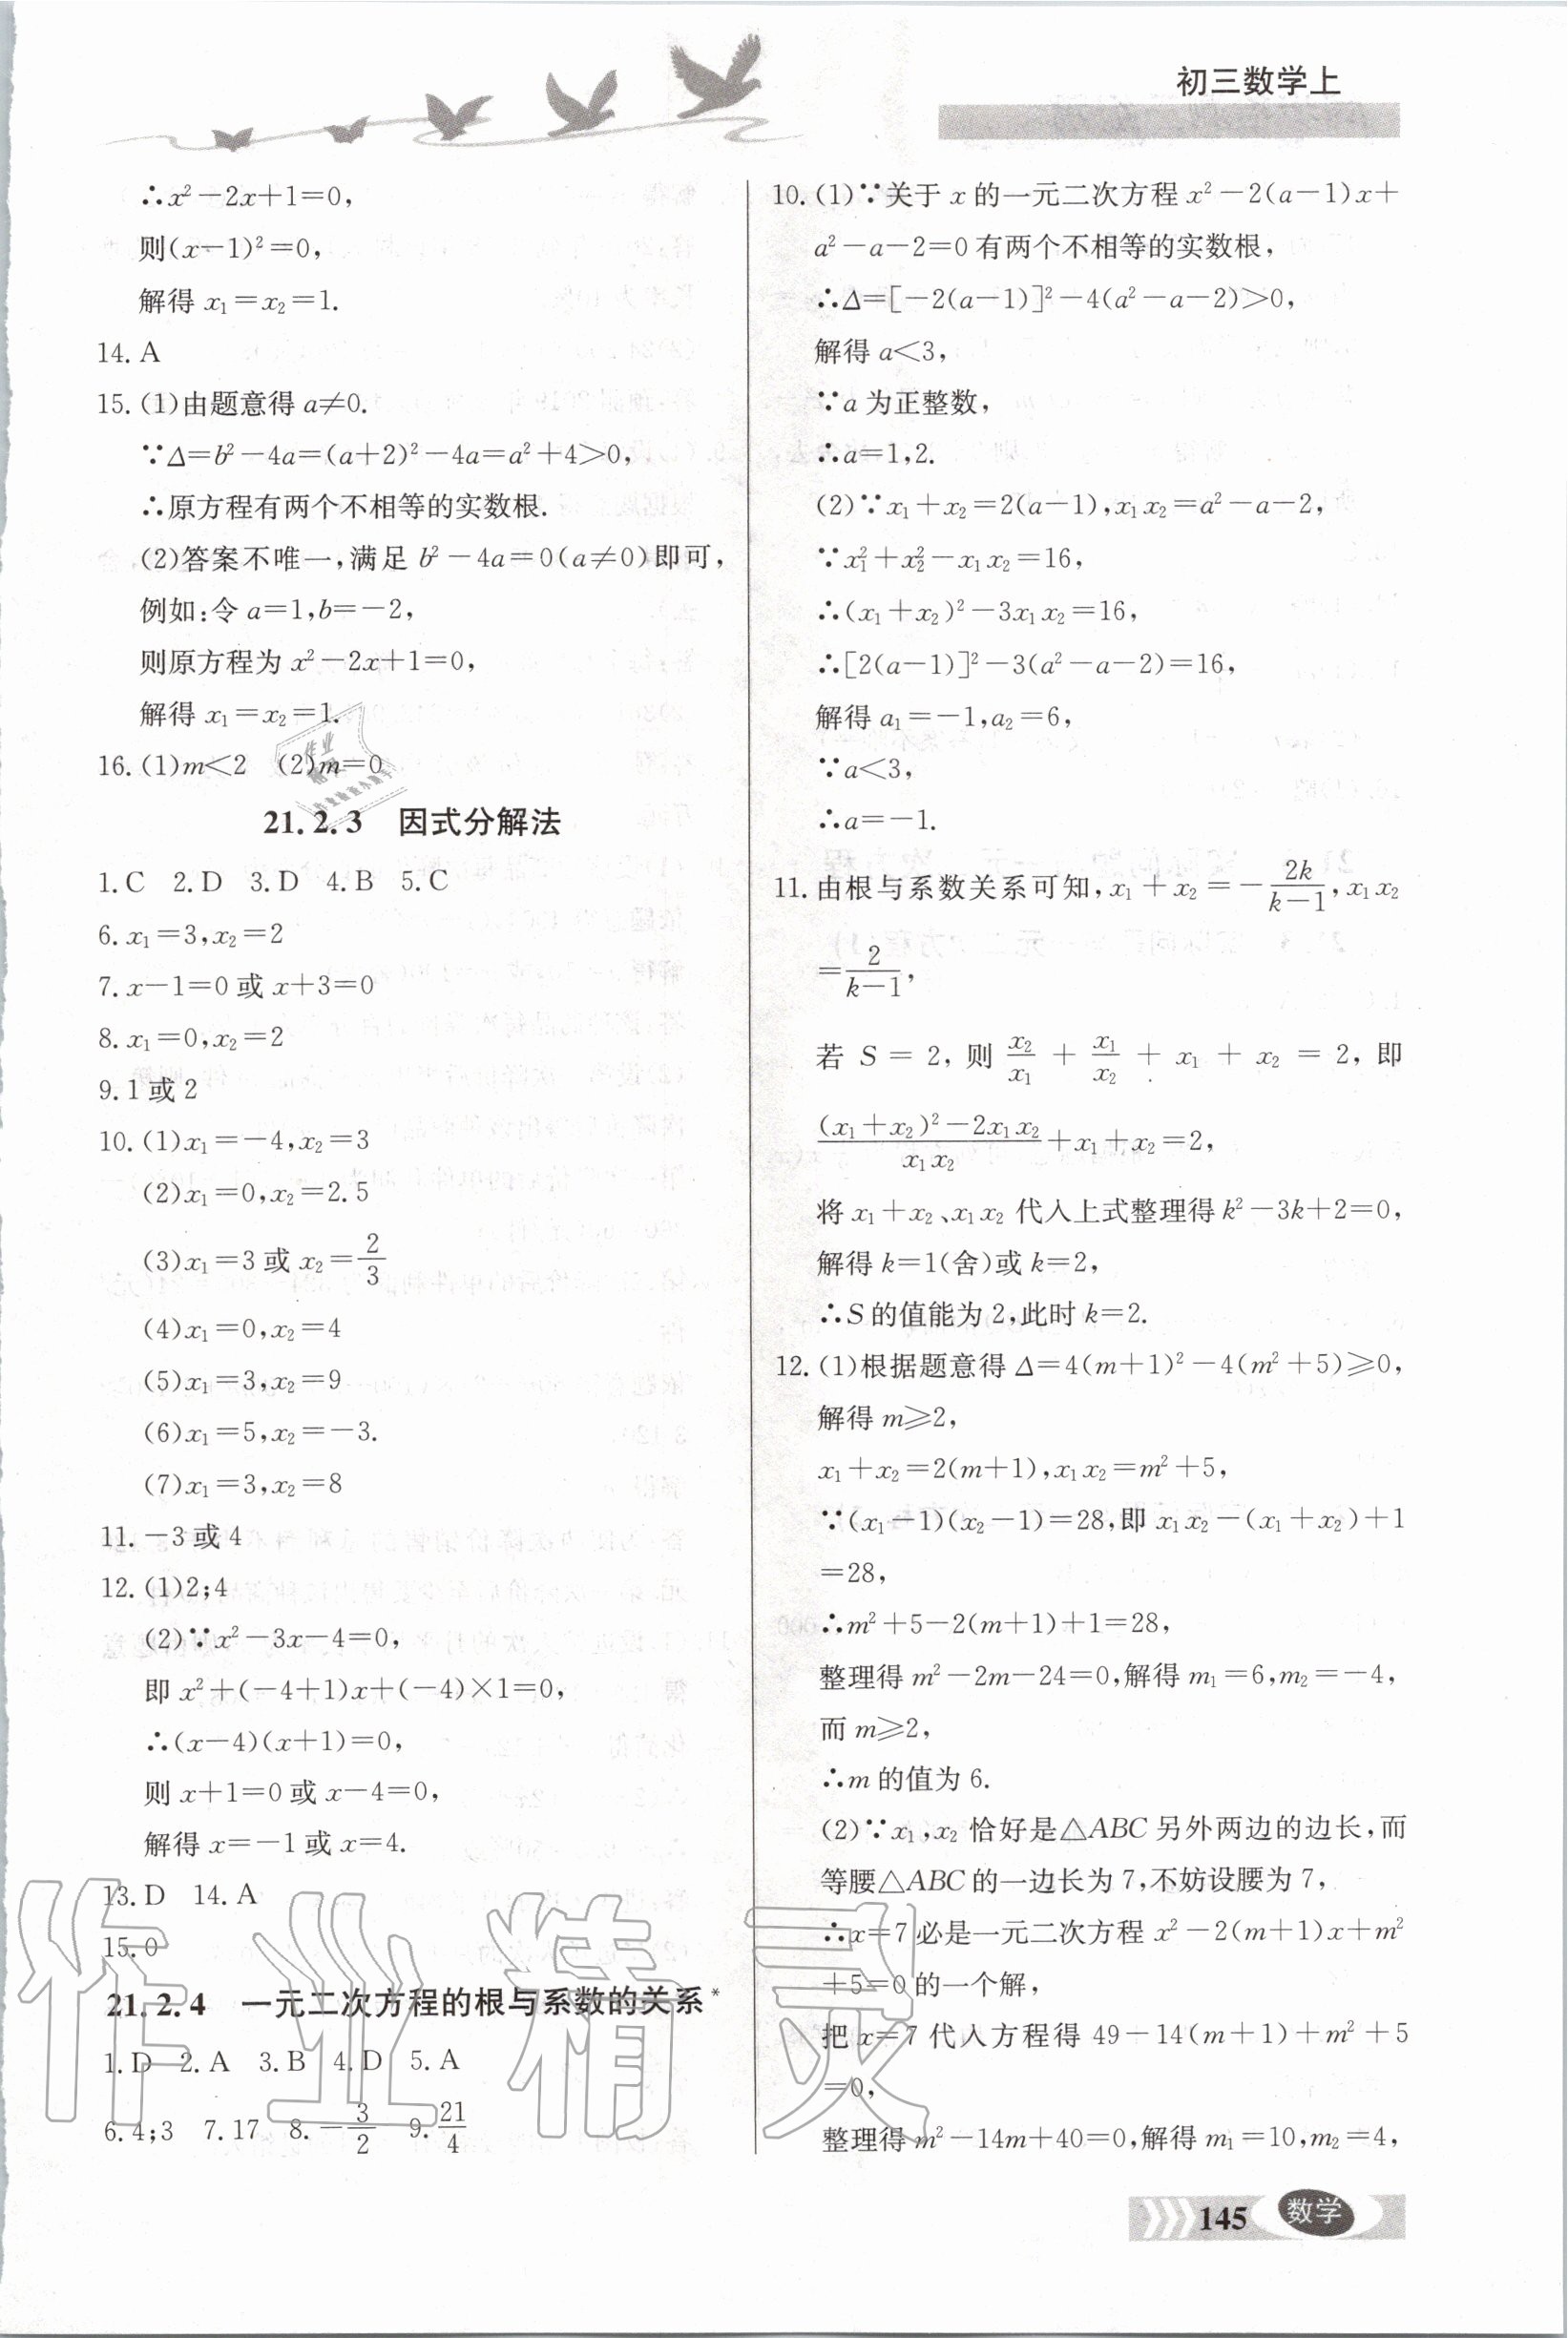 初三数学上
∴x²－2x＋1＝0,
则(x－1)²＝0,
解得 x₁＝x₂＝1.
14. A
15. (1)由题意得 a≠0.
∵Δ＝b²－4a＝(a＋2)²－4a＝a²＋4＞0,
∴原方程有两个不相等的实数根.
(2)答案不唯一,满足 b²－4a＝0(a≠0)即可,
例如:令 a＝1,b＝－2,
则原方程为 x²－2x＋1＝0,
解得 x₁＝x₂＝1.
16. (1)m＜2 (2)m＝0
21.2.3 因式分解法
1. C 2. D 3. D 4. B 5. C
6. x₁＝3,x₂＝2
7. x－1＝0 或 x＋3＝0
8. x₁＝0,x₂＝2
9. 1 或 2
10. (1)x₁＝－4,x₂＝3
(2)x₁＝0,x₂＝2.5
(3)x₁＝3 或 x₂＝2/3
(4)x₁＝0,x₂＝4
(5)x₁＝3,x₂＝9
(6)x₁＝5,x₂＝－3.
(7)x₁＝3,x₂＝8
11. －3 或 4
12. (1)2;4
(2)∵x²－3x－4＝0,
即 x²＋(－4＋1)x＋(－4)×1＝0,
∴(x－4)(x＋1)＝0,
则 x＋1＝0 或 x－4＝0,
解得 x＝－1 或 x＝4.
13. D 14. A
15. 0
21.2.4 一元二次方程的根与系数的关系*
1. D 2. A 3. B 4. D 5. A
6. 4;3 7. 17 8. －3/2 9. 21/4
10. (1)∵关于 x 的一元二次方程 x²－2(a－1)x＋
a²－a－2＝0 有两个不相等的实数根,
∴Δ＝[－2(a－1)]²－4(a²－a－2)＞0,
解得 a＜3,
∵a 为正整数,
∴a＝1,2.
(2)∵x₁＋x₂＝2(a－1),x₁x₂＝a²－a－2,
∵x₁²＋x₂²－x₁x₂＝16,
∴(x₁＋x₂)²－3x₁x₂＝16,
∴[2(a－1)]²－3(a²－a－2)＝16,
解得 a₁＝－1,a₂＝6,
∵a＜3,
∴a＝－1.
11. 由根与系数关系可知,x₁＋x₂＝－2k/(k－1),x₁x₂
＝2/(k－1),
若 S＝2,则 x₂/x₁＋x₁/x₂＋x₁＋x₂＝2,即
((x₁＋x₂)²－2x₁x₂)/(x₁x₂)＋x₁＋x₂＝2,
将 x₁＋x₂、x₁x₂ 代入上式整理得 k²－3k＋2＝0,
解得 k＝1(舍)或 k＝2,
∴S 的值能为 2,此时 k＝2.
12. (1)根据题意得 Δ＝4(m＋1)²－4(m²＋5)≥0,
解得 m≥2,
x₁＋x₂＝2(m＋1),x₁x₂＝m²＋5,
∵(x₁－1)(x₂－1)＝28,即 x₁x₂－(x₁＋x₂)＋1
＝28,
∴m²＋5－2(m＋1)＋1＝28,
整理得 m²－2m－24＝0,解得 m₁＝6,m₂＝－4,
而 m≥2,
∴m 的值为 6.
(2)∵x₁,x₂ 恰好是△ABC 另外两边的边长,而
等腰△ABC 的一边长为 7,不妨设腰为 7,
∴x＝7 必是一元二次方程 x²－2(m＋1)x＋m²
＋5＝0 的一个解,
把 x＝7 代入方程得 49－14(m＋1)＋m²＋5
＝0,
整理得 m²－14m＋40＝0,解得 m₁＝10,m₂＝4,
145 数学
作业精灵